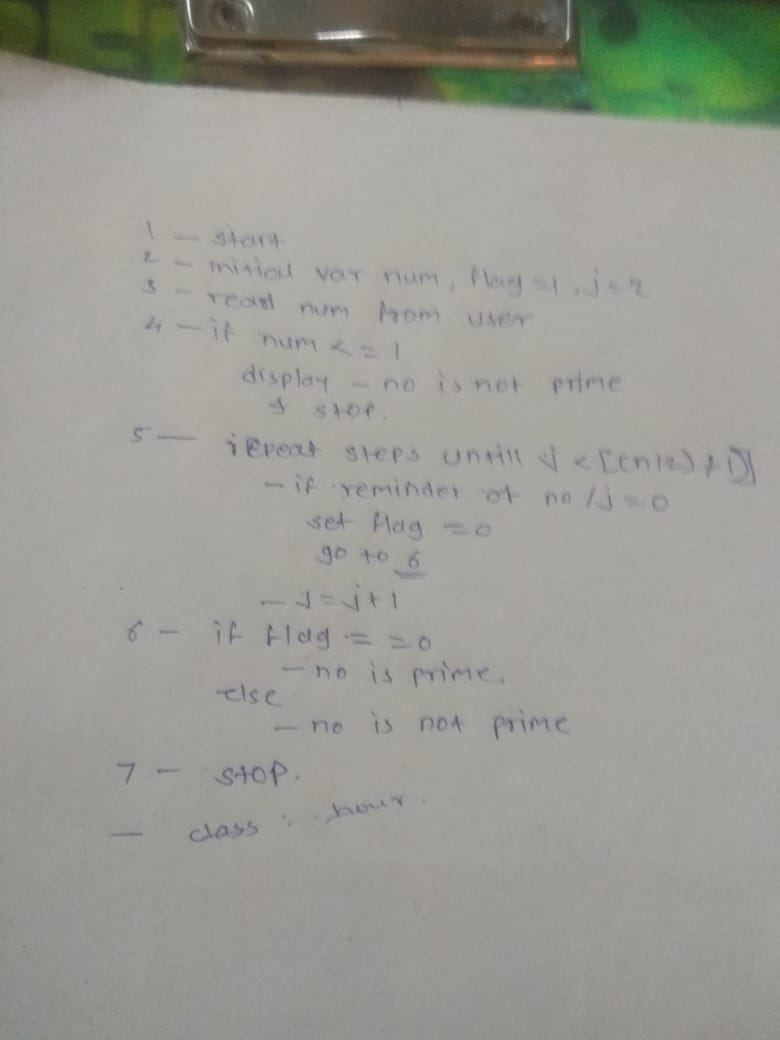 1 - start
2 - initial var num, flag = 1, j = 2
3 - read num from user
4 - if num <= 1
display - no is not prime
& stop.
5 - repeat steps untill j < [(n/2) + 1]
- if reminder of no / j = 0
set flag = 0
go to 6
- j = j + 1
6 - if flag = = 0
- no is prime.
else
- no is not prime
7 - stop.
- class : hour.